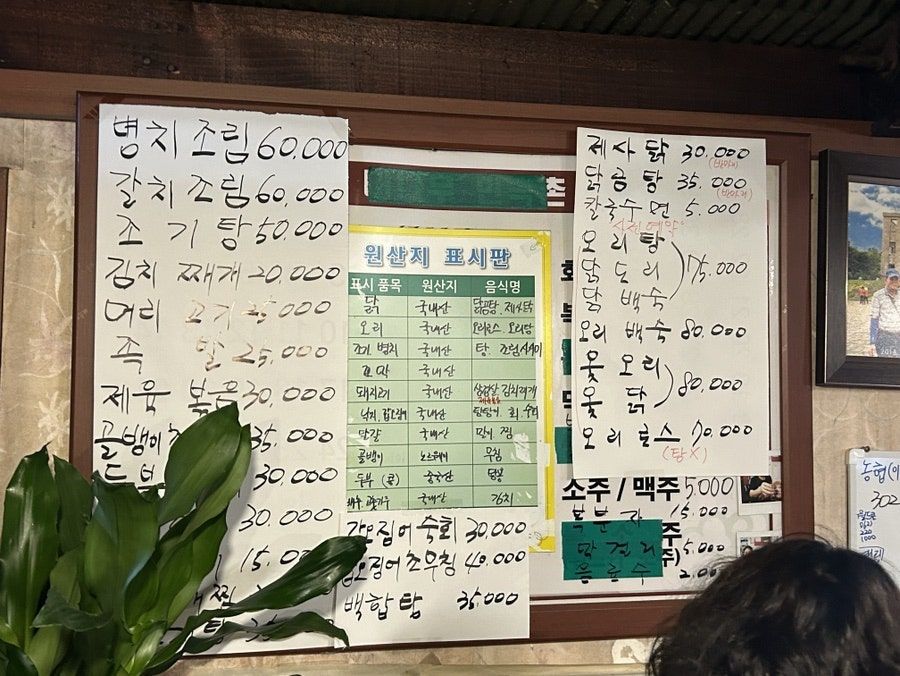 병치 조림 60,000
갈치 조림 60,000
조기탕 50.000
김치 찌개 20,000
머리 고기 25,000
족 발 25,000
제육 볶음 30,000
골뱅이 35.000
30.000
30.000
15.000
원산지 표시판
표시 품목 원산지 음식명
닭 국내산 닭곰탕. 제사닭
오리 국내산 오리로스 오리탕
조기. 병치 국내산 탕. 조림
국내산
돼지고기 국내산 삼겹살, 김치찌개
낙지, 갑오징어 국내산
달걀 국내산 말이 찜
골뱅이 노르웨이 무침
두부 (콩) 중국산
배추 고춧가루 국내산 김치
갑오징어 숙회 30,000
갑오징어 초무침 40.000
백합탕 35,000
촌
제사 닭 30.000
닭곰탕 35.000
칼국수면 5.000
오리탕
닭 도리
닭 백숙
75.000
오리 백숙 80.000
옻 오리
옻 닭
80,000
오리 로스 70.000
(탕X)
소주 / 맥주 5,000
복분자 15.000
막걸리 5.000
음료수 2.000
농협
302